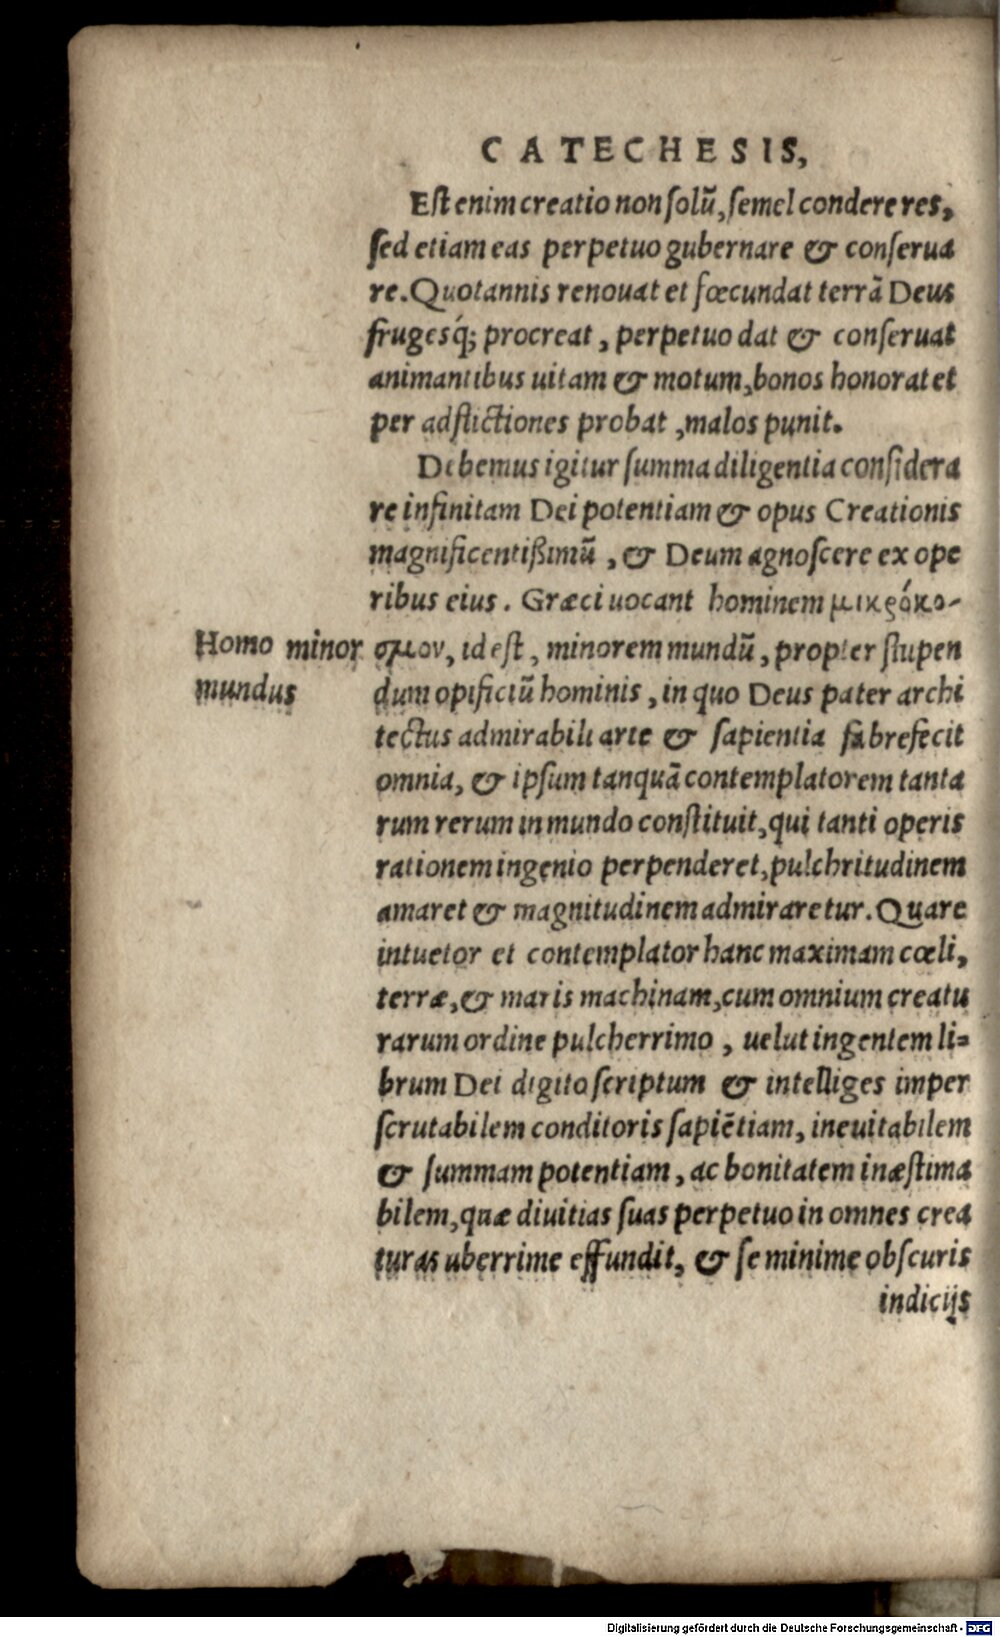 CATECHESIS,
Est enim creatio non solũ, semel condere res,
sed etiam eas perpetuo gubernare & conserua
re. Quotannis renouat et fœcundat terrã Deus
frugesq́; procreat, perpetuo dat & conseruat
animantibus uitam & motum, bonos honorat et
per adflictiones probat, malos punit.
Debemus igitur summa diligentia considera
re infinitam Dei potentiam & opus Creationis
magnificentißimũ, & Deum agnoscere ex ope
ribus eius. Græci uocant hominem μικρόκο-
Homo minor σμον, id est, minorem mundũ, propter stupen
mundus dum opificiũ hominis, in quo Deus pater archi
tectus admirabili arte & sapientia fabrefecit
omnia, & ipsum tanquã contemplatorem tanta
rum rerum in mundo constituit, qui tanti operis
rationem ingenio perpenderet, pulchritudinem
amaret & magnitudinem admiraretur. Quare
intuetor et contemplator hanc maximam cœli,
terræ, & maris machinam, cum omnium creatu
rarum ordine pulcherrimo, uelut ingentem li=
brum Dei digito scriptum & intelliges imper
scrutabilem conditoris sapiẽtiam, ineuitabilem
& summam potentiam, ac bonitatem inæstima
bilem, quæ diuitias suas perpetuo in omnes crea
turas uberrime effundit, & se minime obscuris
indicijs
Digitalisierung gefördert durch die Deutsche Forschungsgemeinschaft - DFG